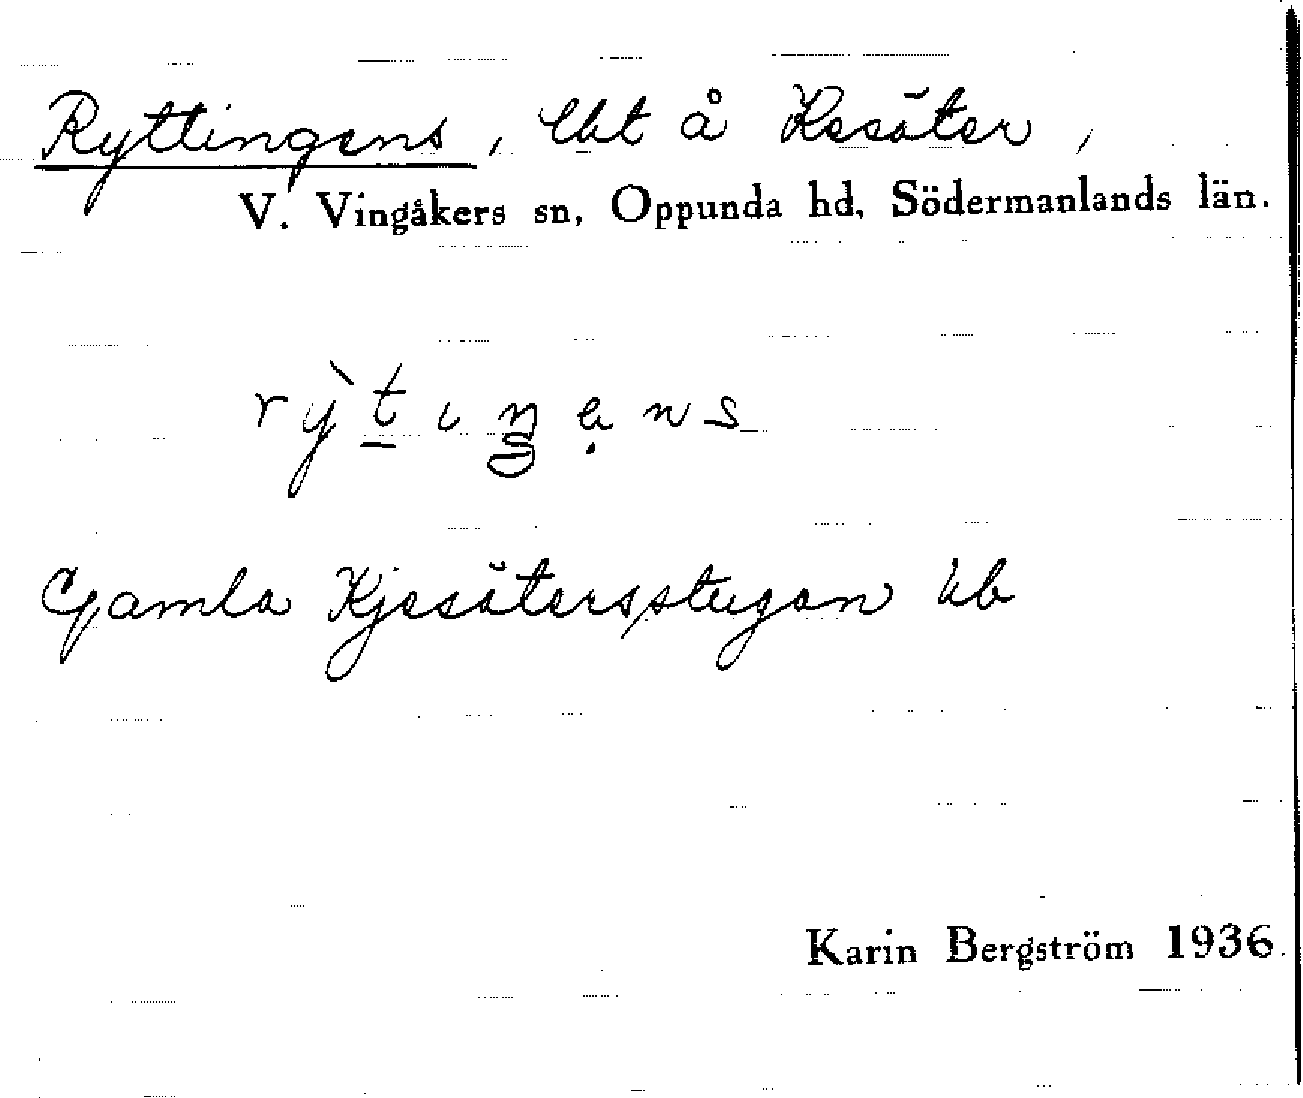 Ryttingens, lht å Kesäter,
V. Vingåkers sn, Oppunda hd, Södermanlands län.
Gamla Kjesätersstugan
Karin Bergström 1936.